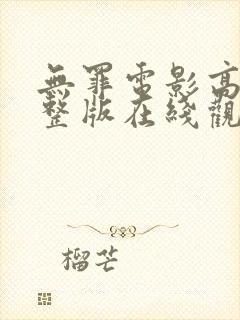 無罪電影高
整版在綫觀
榴芒